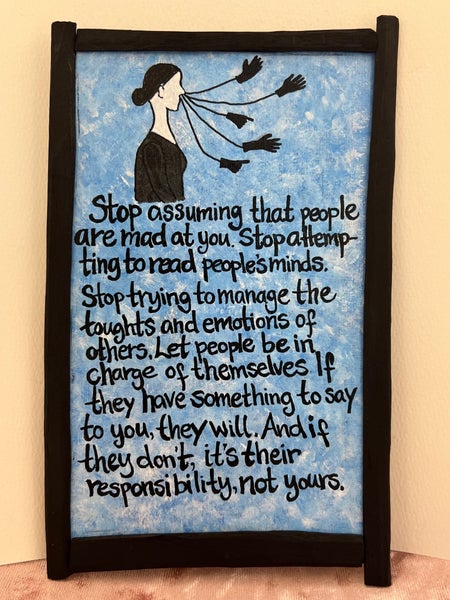 Stop assuming that people
are mad at you. Stop attemp-
ting to read people's minds.
Stop trying to manage the
toughts and emotions of
others. Let people be in
charge of themselves If
they have something to say
to you, they will. And if
they don't, it's their
responsibility, not yours.